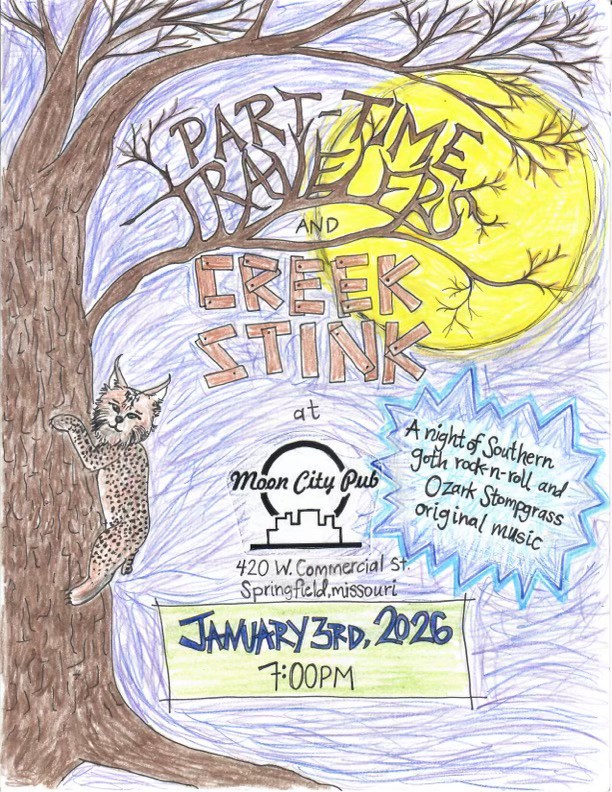 PART-TIME
TRAVELERS
AND
CREEK
STINK
at
Moon City Pub
420 W. Commercial St.
Springfield, missouri
A night of Southern
goth rock-n-roll and
Ozark Stompgrass
original music
JANUARY 3RD, 2026
7:00PM